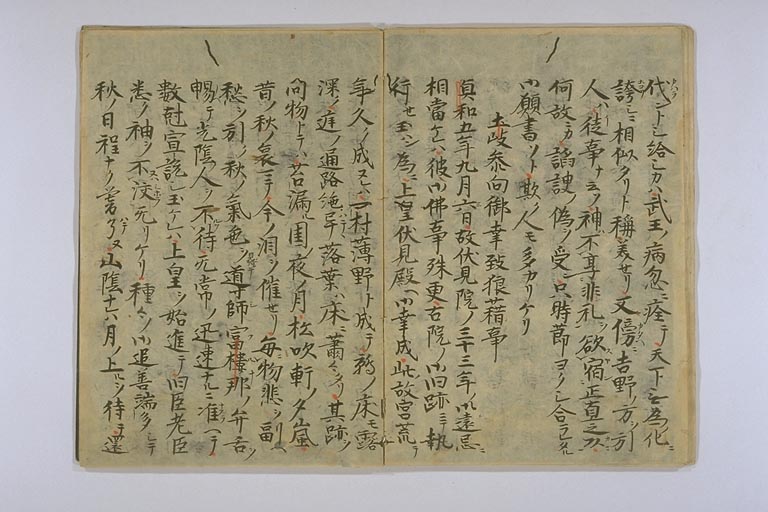 代ント乄給シカハ武王ノ病忽ニ痊テ天下ニ為化ニ
誇ニ相似タリト稱美セリ又傍ニ吉野ノ方ヲ引
人ハ徒事ナ云ソ神不享非礼ヲ欲宿正直之頭
何故ニカ諂諛ノ偽ヲ受ン只時節ヨクシ合ラレタル
御願書ソト欺ク人モ多カリケリ
土岐参向御幸致狼藉事
貞和五年九月六日故伏見院ノ三十三年ノ御遠忌ニ
相當ケレハ彼御佛事殊更古院ノ御旧跡ニテ執
行セ玉ン為ニ上皇伏見殿ヘ御幸成此故宮荒テ
年久ク成ヌレハ一村薄野ト成テ鶉ノ床モ露
深ク庭ノ通路絶早落葉ハ床ニ蕭々タリ其跡ヲ
問物トテハ苔漏ル閨ノ夜ノ月松吹軒ノ夕嵐
昔ノ秋ノ哀マテ今ノ泪ヲ催セリ毎物悲ヲ副
愁ヲ引ク秋ノ氣色ヲ導師富楼那ノ弁舌
暢テ光陰人ヲ不待无常ノ迅速ナルニ准ヘテ
数尅宣説シ玉ケレハ上皇ヲ始進テ旧臣老臣
悉ク袖ヲ不絞无リケリ種々ノ御追善端多クシテ
秋ノ日程ナク昏ケリ又山陰十六月ノ上ルヲ待テ還